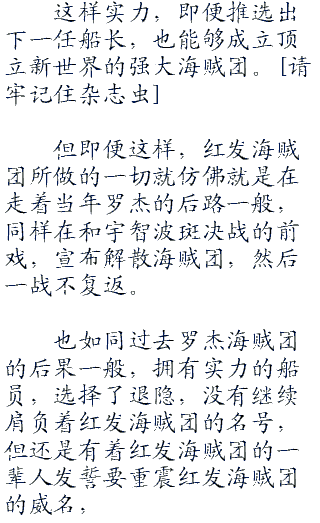 这样实力，即便推选出
下一任船长，也能够成立顶
立新世界的强大海贼团。[请
牢记住杂志虫]
但即便这样，红发海贼
团所做的一切就仿佛就是在
走着当年罗杰的后路一般，
同样在和宇智波斑决战的前
戏，宣布解散海贼团，然后
一战不复返。
也如同过去罗杰海贼团
的后果一般，拥有实力的船
员，选择了退隐，没有继续
肩负着红发海贼团的名号，
但还是有着红发海贼团的一
辈人发誓要重震红发海贼团
的威名，